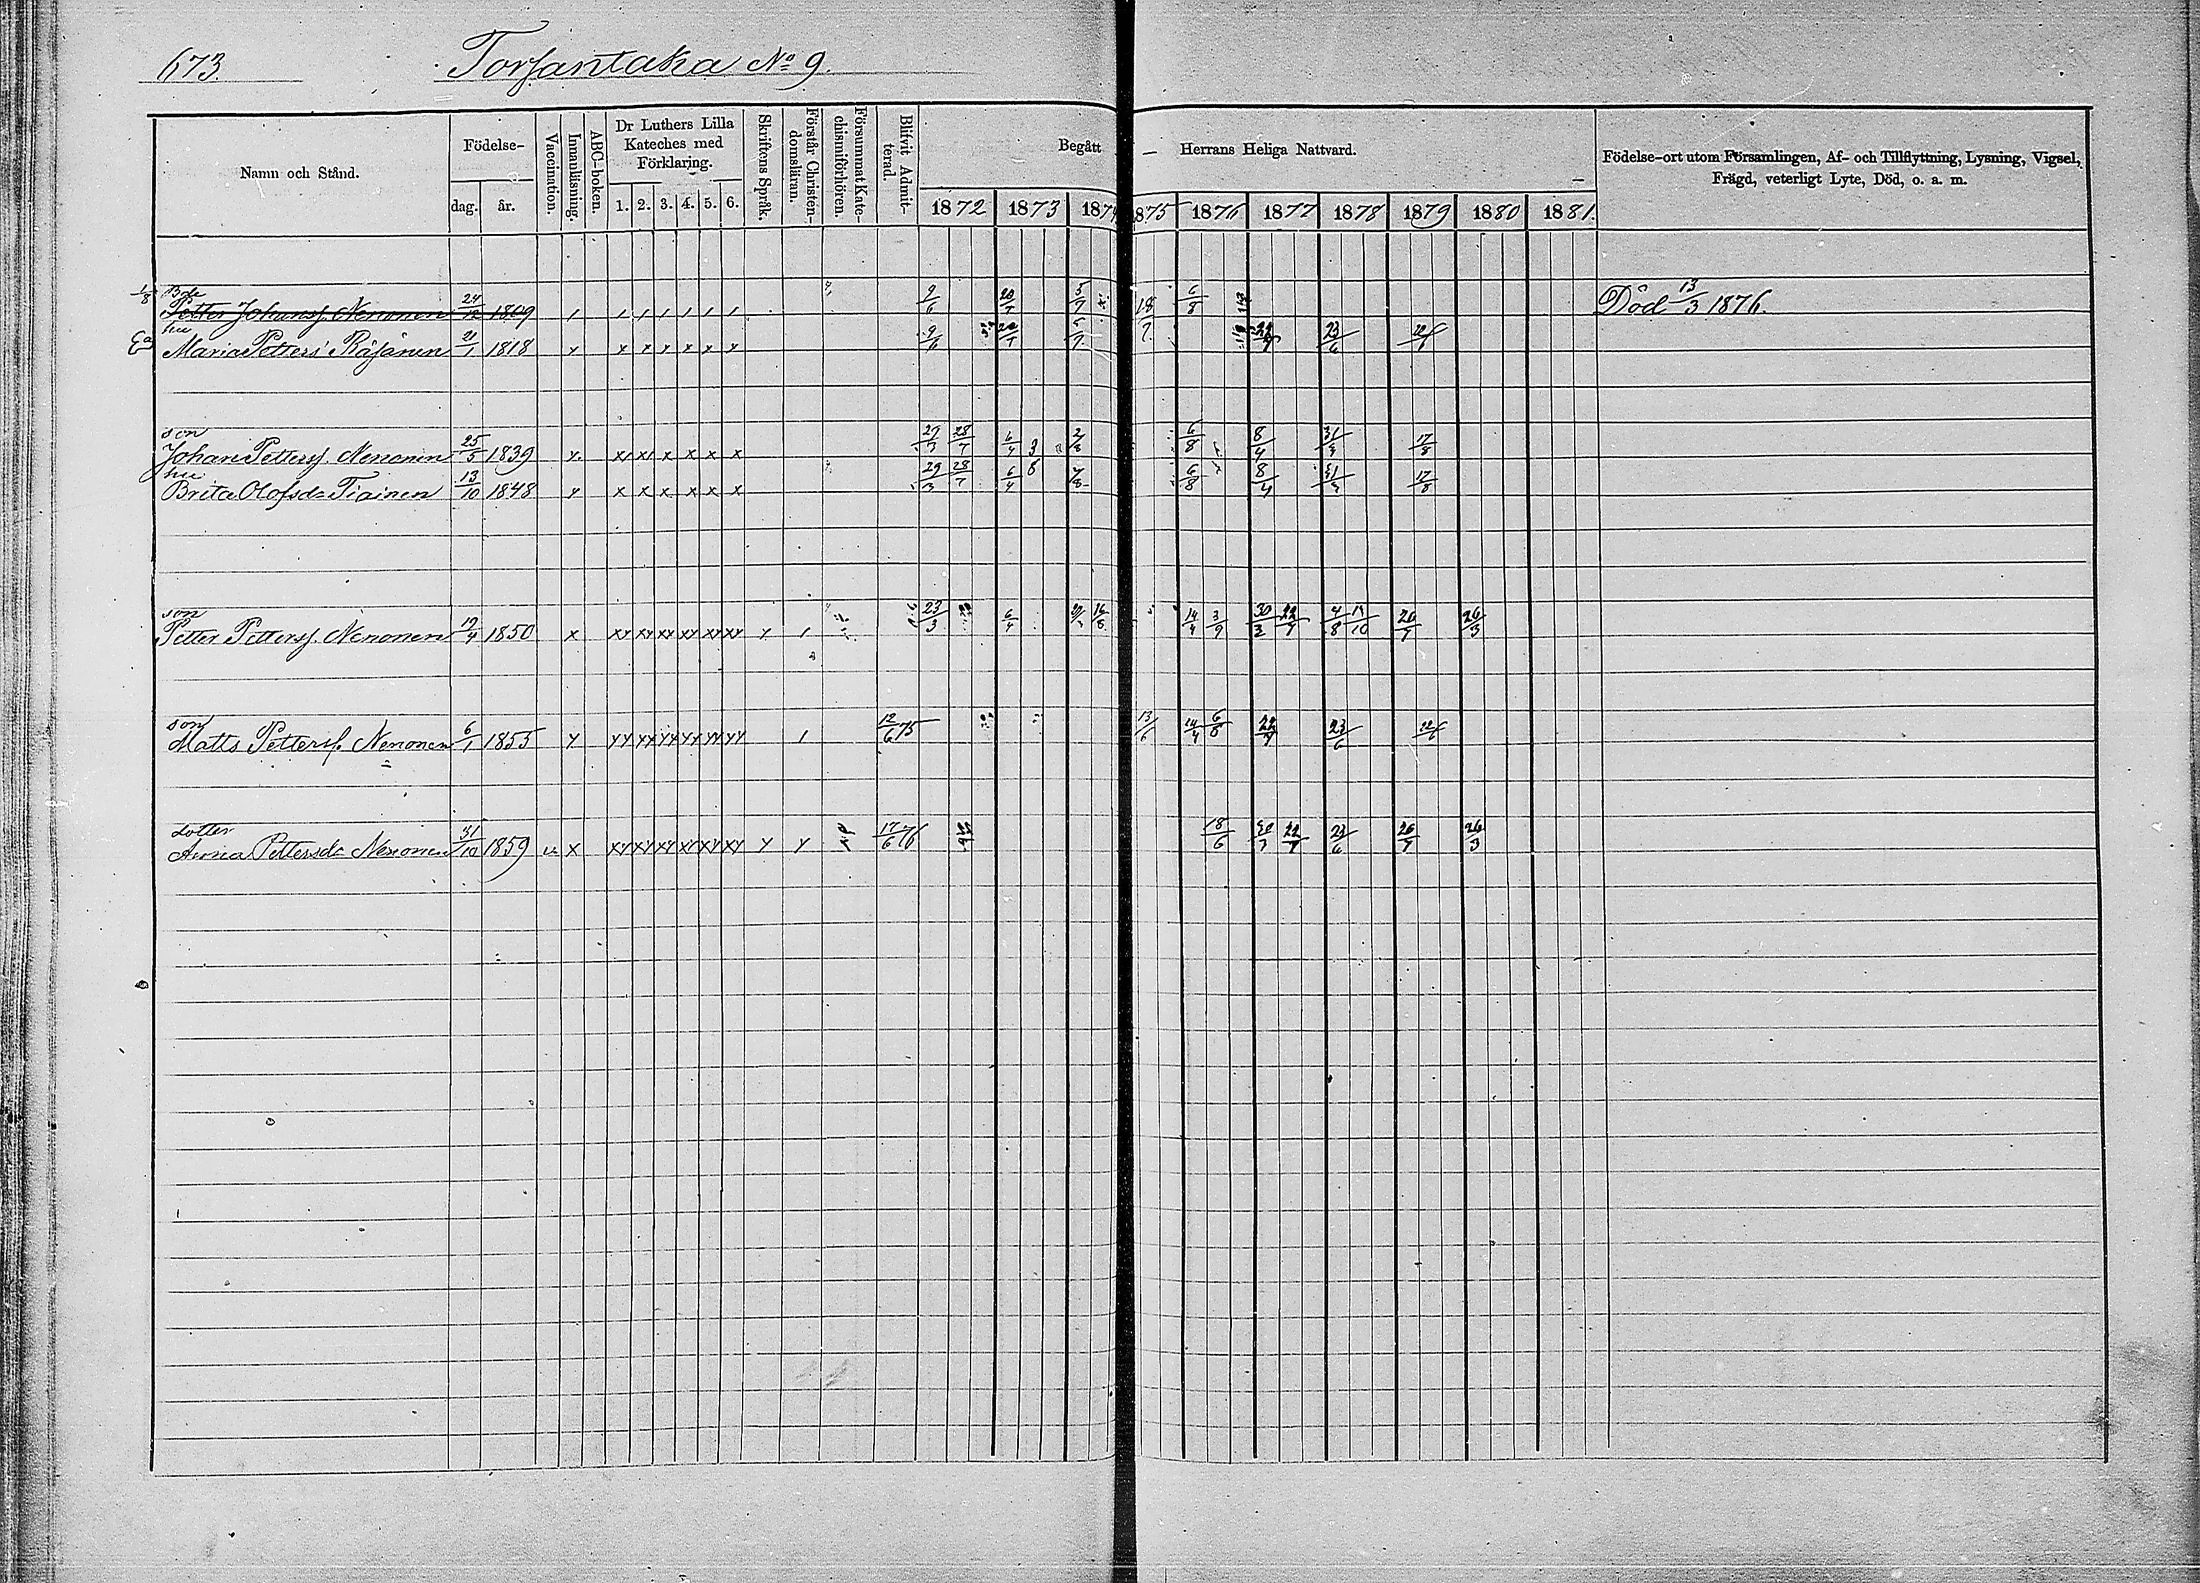 673.
Torsantaka No 9.
Namn och Stånd.
Födelse-
dag.
år.
Vaccination.
Innanläsning.
ABC-boken.
Dr Luthers Lilla
Kateches med
Förklaring.
1. 2. 3. 4. 5. 6.
Skriftens Språk.
Förstår Christen-
domsläran.
Försummat Kate-
chismiförhören.
Blifvit Admit-
terad.
Begått - Herrans Heliga Nattvard.
1872 1873 1874 1875 1876 1877 1878 1879 1880 1881.
Födelse-ort utom Församlingen, Af- och Tillflyttning, Lysning, Vigsel,
Frägd, veterligt Lyte, Död, o. a. m.
1/8 Bde
Petter Johanss. Nenonen 24/12 1809 9/6 20/7 5/7 6/8 Död 13/3 1876.
hu
Ea Maria Petters Räsänen 21/1 1818 x x x x x x x 9/6 23/6
son
Johan Petterss. Nenonen 25/5 1839 x x x x x x x 29/3 28/7 6/4 2/8 6/8 8/4 31/3 17/8
hu
Brita Olofsd. Tiainen 13/10 1848 x x x x x x x 29/3 28/7 6/4 6/8 8/4 31/3 17/8
son
Petter Petterss. Nenonen 19/4 1850 x xx xx xx xx xx xx 23/3 6/4 14/4 3/9 30/3 22/7 4/8 26/7 26/3
son
Matts Petterss. Nenonen 6/1 1855 12/6 75 13/6 14/4 6/8 22/7 23/6
dotter
Anna Pettersd. Nenonen 31/10 1859 x xx xx xx xx xx xx 17/6 76 18/6 22/7 23/6 26/7 26/3